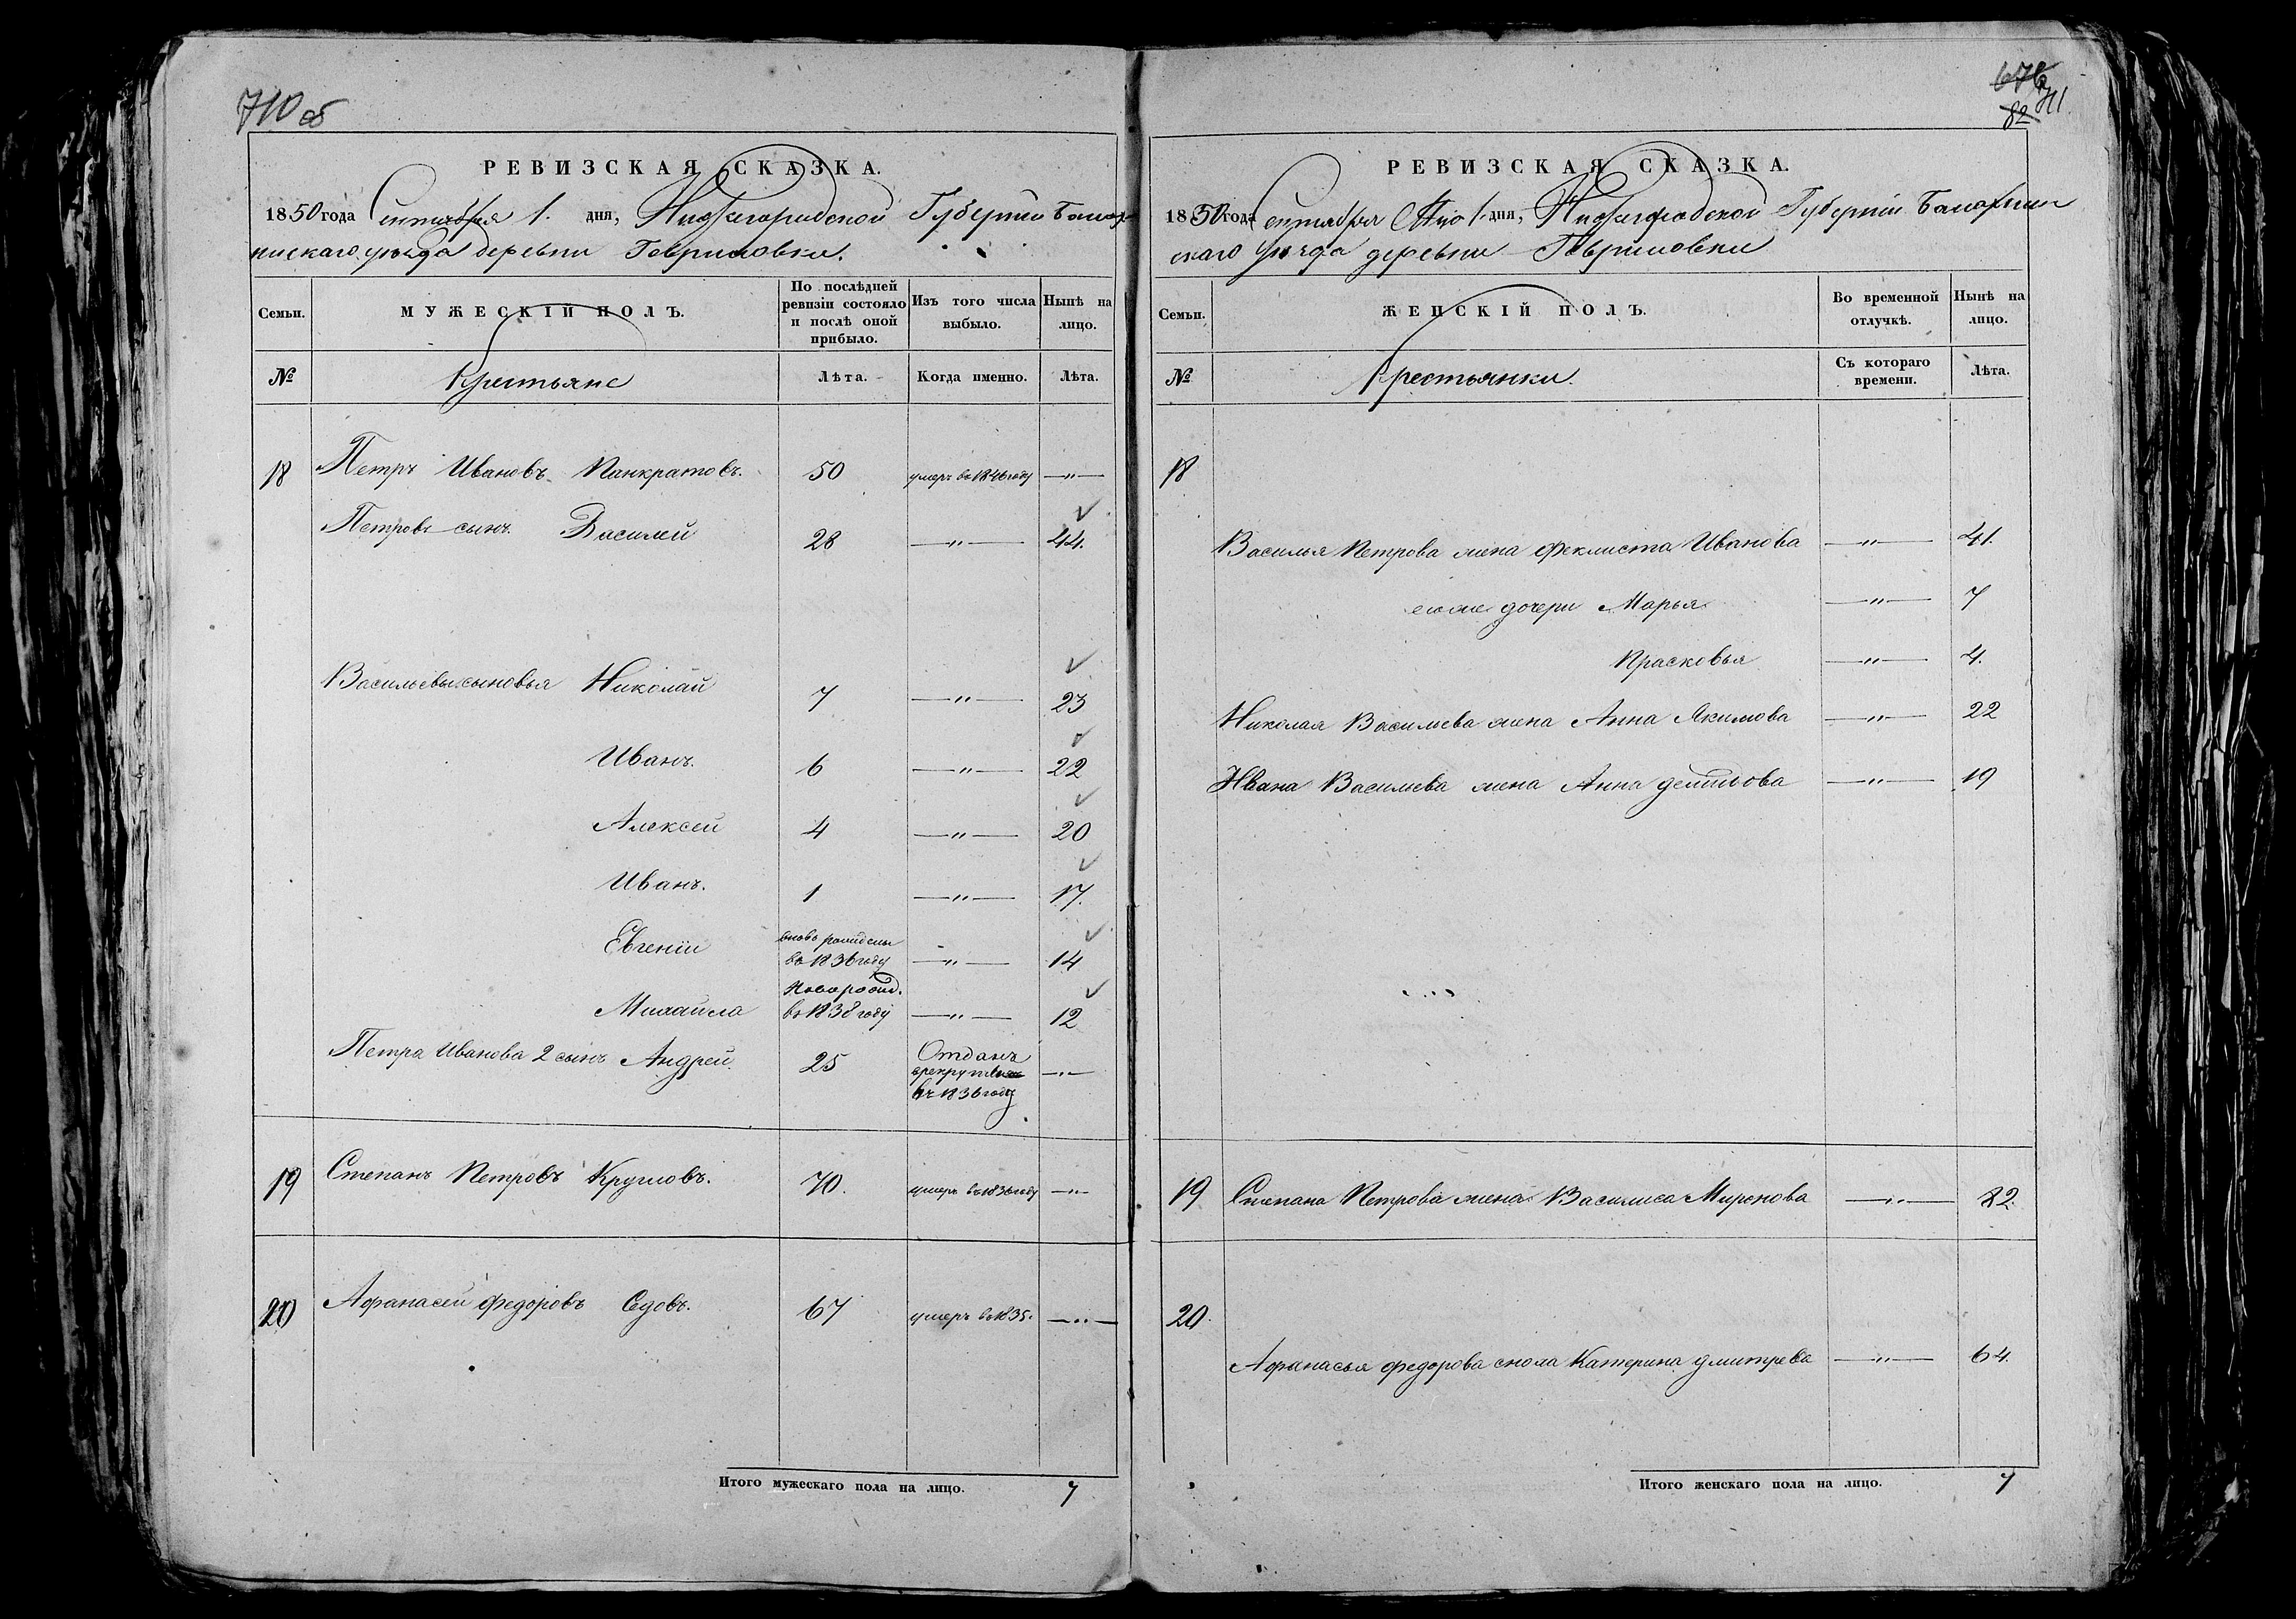 710 об
РЕВИЗСКАЯ СКАЗКА.
1850 года Сентября 1. дня, Нижегородской Губернии Балах-
нинскаго уѣзда деревни Гавриловки.
Семьи. МУЖЕСКІЙ ПОЛЪ. По послѣдней ревизіи состояло и послѣ оной прибыло. Изъ того числа выбыло. Нынѣ на лицо.
№ Крестьяне Лѣта. Когда именно. Лѣта.
18 Петръ Ивановъ Панкратовъ. 50 умеръ въ 1846 году —"—
Петровъ сынъ Василей 28 —"— 44.
Васильевы сыновья Николай 7 —"— 23
Иванъ. 6 —"— 22
Алексей 4 —"— 20
Иванъ. 1 —"— 17.
Евгеніи вновь рожденъ
въ 1836 году —"— 14
Михайла Новорожд.
въ 1838 году —"— 12
Петра Иванова 2 сынъ Андрей 25 Отданъ
в рекруты
въ 1836 году —"—
19 Степанъ Петровъ Кругловъ. 70. умеръ въ 1836 году —"—
20 Афанасей Федоровъ Седовъ. 67 умеръ въ 1835. —"—
Итого мужескаго пола на лицо. 7
676
82 711
РЕВИЗСКАЯ СКАЗКА.
1850 года Сентября 1 дня, Нижегородской Губерніи Балахнин
скаго уѣзда деревни Гавриловки
Семьи. ЖЕНСКІЙ ПОЛЪ. Во временной отлучкѣ. Нынѣ на лицо.
№ Крестьянки. Съ котораго времени. Лѣта.
18
Василья Петрова жена Феклиста Иванова —"— 41.
ево же дочери Марья —"— 7
Прасковья —"— 4.
Николая Васильева жена Анна Якимова —"— 22
Ивана Васильева жена Анна —"— 19
19 Степана Петрова жена Василиса Миронова —"— 82.
20.
Афанасья Федорова сноха Катерина Дмитрева —"— 64.
Итого женскаго пола на лицо. 7